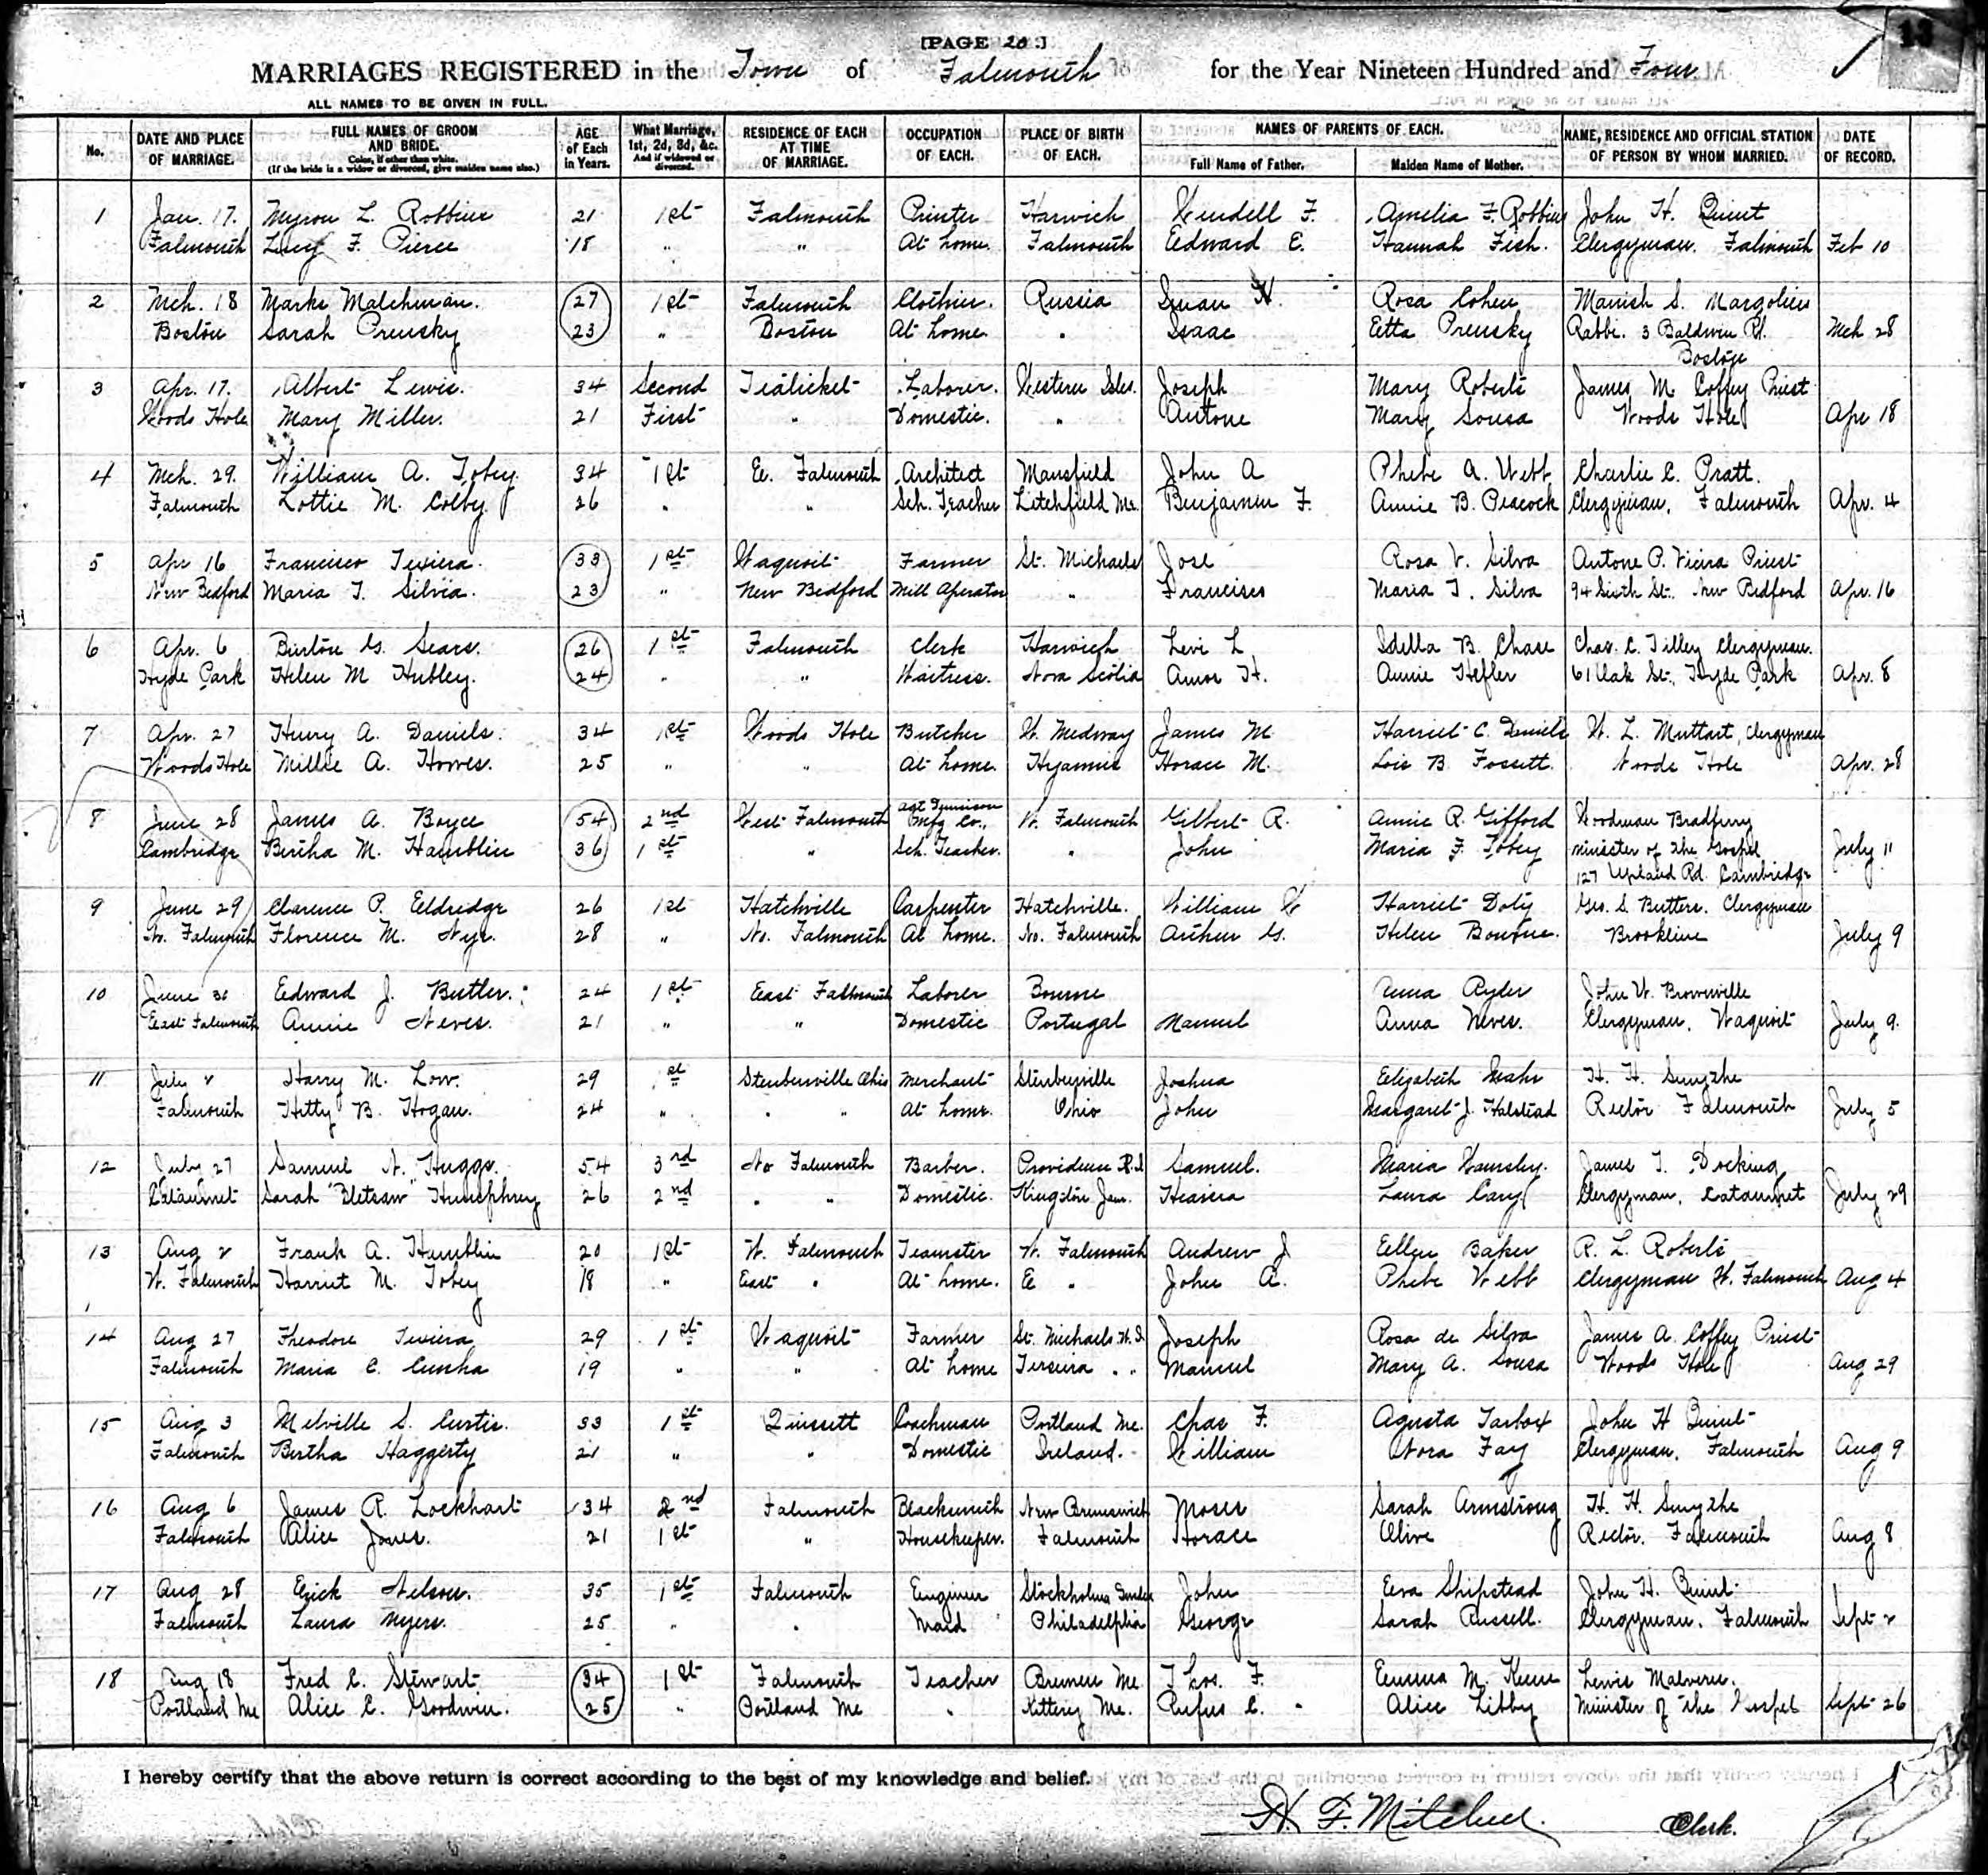 [PAGE 20.]
MARRIAGES REGISTERED in the Town of Falmouth for the Year Nineteen Hundred and Four
ALL NAMES TO BE GIVEN IN FULL.
No. DATE AND PLACE OF MARRIAGE. FULL NAMES OF GROOM AND BRIDE. Color, if other than white. (If the bride is a widow or divorced, give maiden name also.) AGE of Each in Years. What Marriage, 1st, 2d, 3d, &c. And if widowed or divorced. RESIDENCE OF EACH AT TIME OF MARRIAGE. OCCUPATION OF EACH. PLACE OF BIRTH OF EACH. NAMES OF PARENTS OF EACH. Full Name of Father. Maiden Name of Mother. NAME, RESIDENCE AND OFFICIAL STATION OF PERSON BY WHOM MARRIED. DATE OF RECORD.
1 Jan. 17. Myron L. Robbins 21 1st Falmouth Printer Harwich Wendell F. Amelia F. Robbins John H. Quint
Falmouth Lucy F. Pierce 18 " " At home. Falmouth Edward E. Hannah Fish. Clergyman. Falmouth Feb 10
2 Mch. 18 Marks Malchman. 27 1st Falmouth Clothier. Russia H. Rosa Cohen Manish S. Margolies
Boston Sarah Prensky 23 " Boston At home " Isaac Etta Prensky Rabbi. 3 Baldwin Pl. Mch 28
Boston
3 Apr. 17. Albert Lewis. 34 Second Teaticket Laborer. Western Isles. Joseph Mary Roberts James M. Coffey Priest
Woods Hole Mary Miller. 21 First " Domestic. " Antone Mary Sousa Woods Hole Apr 18
4 Mch. 29. William A. Tobey. 34 1st E. Falmouth Architect Mansfield John A Phebe A. Webb Charlie E. Pratt.
Falmouth Lottie M. Colby. 26 " " Sch. Teacher Litchfield Me. Benjamin F. Annie B. Peacock Clergyman, Falmouth Apr. 4
5 Apr 16 Francisco Teixiera. 33 1st Waquoit Farmer St. Michaels Jose Rosa V. Silva Antone P. Vieira Priest
New Bedford Maria T. Silvia. 23 " New Bedford Mill Operator " Francisco Maria T. Silva 94 Sixth St. New Bedford Apr. 16
6 Apr. 6 Burton G. Sears. 26 1st Falmouth Clerk Harwich Levi L Idella B. Chase Chas. C. Tilley Clergyman.
Hyde Park Helen M Hubley. 24 " " Waitress. Nova Scotia Amos H. Annie Hefler 61 Oak St., Hyde Park Apr. 8
7 Apr. 27 Henry A. Daniels. 34 1st Woods Hole Butcher W. Medway James M Harriet C. Daniels W. L. Muttart, Clergyman
Woods Hole Millie A. Howes. 25 " " At home. Hyannis Horace M. Lois B. Fossett. Woods Hole Apr. 28
8 June 28 James A. Boyce 54 2nd West Falmouth Agt Dennison Mfg Co., W. Falmouth Gilbert R. Annie R. Gifford Woodman Bradbury
Cambridge Bertha M. Hamblin 36 1st " Sch. Teacher. " John Maria F. Tobey Minister of the Gospel July 11
127 Upland Rd. Cambridge
9 June 29 Clarence P. Eldredge 26 1st Hatchville Carpenter Hatchville. William W Harriet Doty Geo. S. Butters. Clergyman
No. Falmouth Florence M. Nye. 28 " No. Falmouth At home. No. Falmouth Arthur G. Helen Bourne. Brookline July 9
10 June 30 Edward J. Butler. 24 1st East Falmouth Laborer Bourne Anna Ryder John W. Brownville
East Falmouth Annie Neves. 21 " " Domestic Portugal Manuel Anna Neves. Clergyman, Waquoit July 9.
11 July 2 Harry M. Low. 29 st Steubenville Ohio Merchant Steubenville Joshua Elizabeth H. H. Smythe
Falmouth Hitty B. Hogan. 24 " " " At home. Ohio John Margaret J. Halstead Rector Falmouth July 5
12 July 27 Samuel N. Huggs. 54 3rd No Falmouth Barber. Providence R.I Samuel. Maria Hamsley. James T. Docking
Cataumet Sarah "Bletsaw" Humphrey 26 2nd " " Domestic. Kingston Jam. Laura Cary Clergyman, Cataumet July 29
13 Aug 2 Frank A. Hamblin 20 1st W. Falmouth Teamster W. Falmouth Andrew J Ellen Baker R. L. Roberts
W. Falmouth Harriet M. Tobey 18 " East " At home. E " John A. Phebe Webb Clergyman W. Falmouth Aug 4
14 Aug 27 Theodore Teixiera 29 1st Waquoit Farmer St. Michaels W. I. Joseph Rosa de Silva James A. Coffey Priest
Falmouth Maria C. Cunha 19 " " At home Terseira " " Manuel Mary A. Sousa Woods Hole Aug 29
15 Aug 3 Melville S. Curtis. 33 1st Quissett Coachman Portland Me. Chas F. Agusta Tarbox John H Quint
Falmouth Bertha Haggerty 21 " " Domestic Ireland. William Nora Fay Clergyman. Falmouth Aug 9
16 Aug 6 James R. Lockhart 34 2nd Falmouth Blacksmith New Brunswick Moses Sarah Armstrong H. H. Smythe
Falmouth Alice Jones. 21 1st " Housekeeper. Falmouth Horace Olive Rector. Falmouth Aug 8
17 Aug 28 Erick Nelson. 35 1st Falmouth Engineer Stockholm Sweden John Eva Shipstead John H. Quint
Falmouth Laura Myers. 25 " " Maid Philadelphia George Sarah Russell. Clergyman. Falmouth Sept 2
18 Aug 18 Fred E. Stewart. 34 1st Falmouth Teacher Bremen Me Thos. F. Emma M. Keene Lewis Malvern.
Portland Me Alice E. Goodwin. 25 " Portland Me " Kittery Me. Rufus C. Alice Libby Minister of the Gospel Sept 26
I hereby certify that the above return is correct according to the best of my knowledge and belief.
H. F. Mitchell. Clerk.